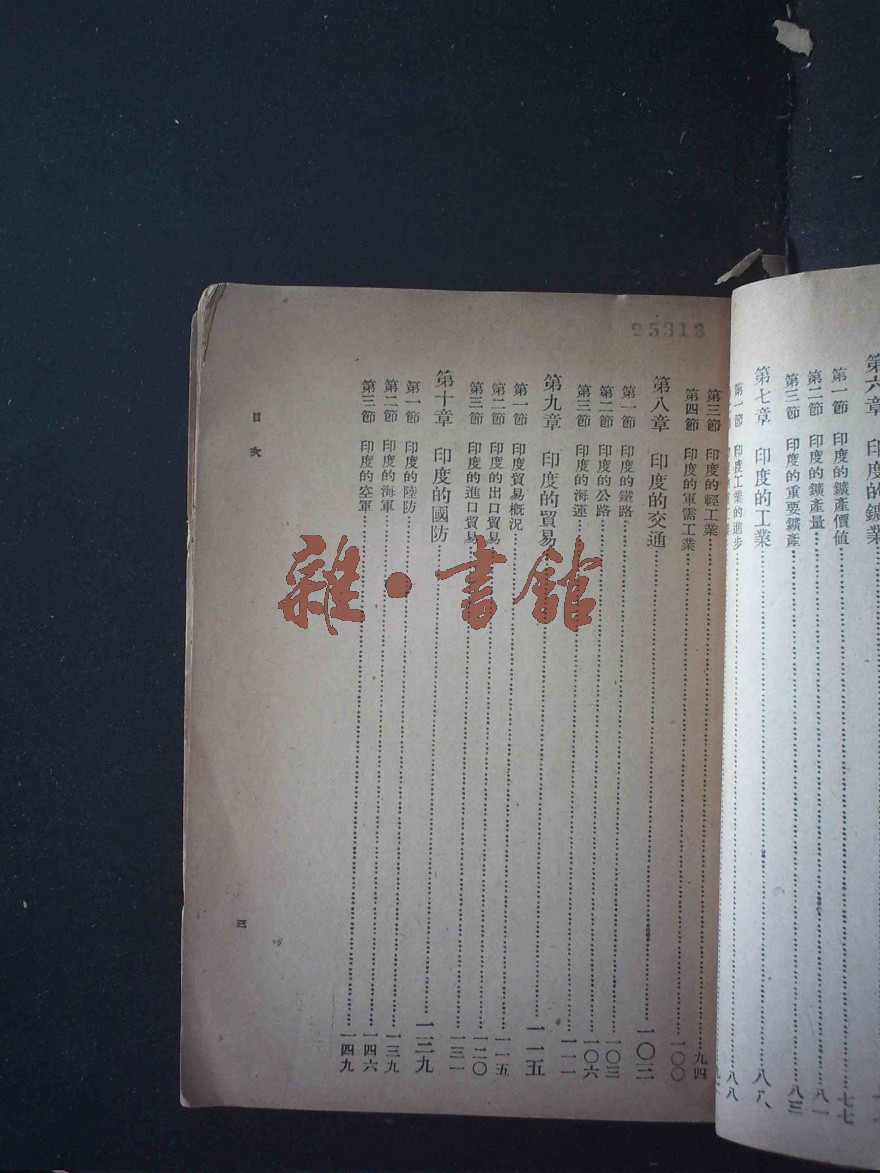 第六章 印度的鑛業
第一節 印度的鑛產價值……七七
第二節 印度的鑛產量……八一
第三節 印度的重要鑛產……八三
第七章 印度的工業……八八
第一節 印度工業的進步……八八
第三節 印度的輕工業……九四
第四節 印度的軍需工業……一〇〇
第八章 印度的交通……一〇三
第一節 印度的鐵路……一〇三
第二節 印度的公路……一〇六
第三節 印度的海運……一一一
第九章 印度的貿易……一一五
第一節 印度貿易概況……一一五
第二節 印度的出口貿易……一二〇
第三節 印度的進口貿易……一三一
第十章 印度的國防……一三九
第一節 印度的陸防……一三九
第二節 印度的海軍……一四六
第三節 印度的空軍……一四九
目次
三
25313
雜·書館